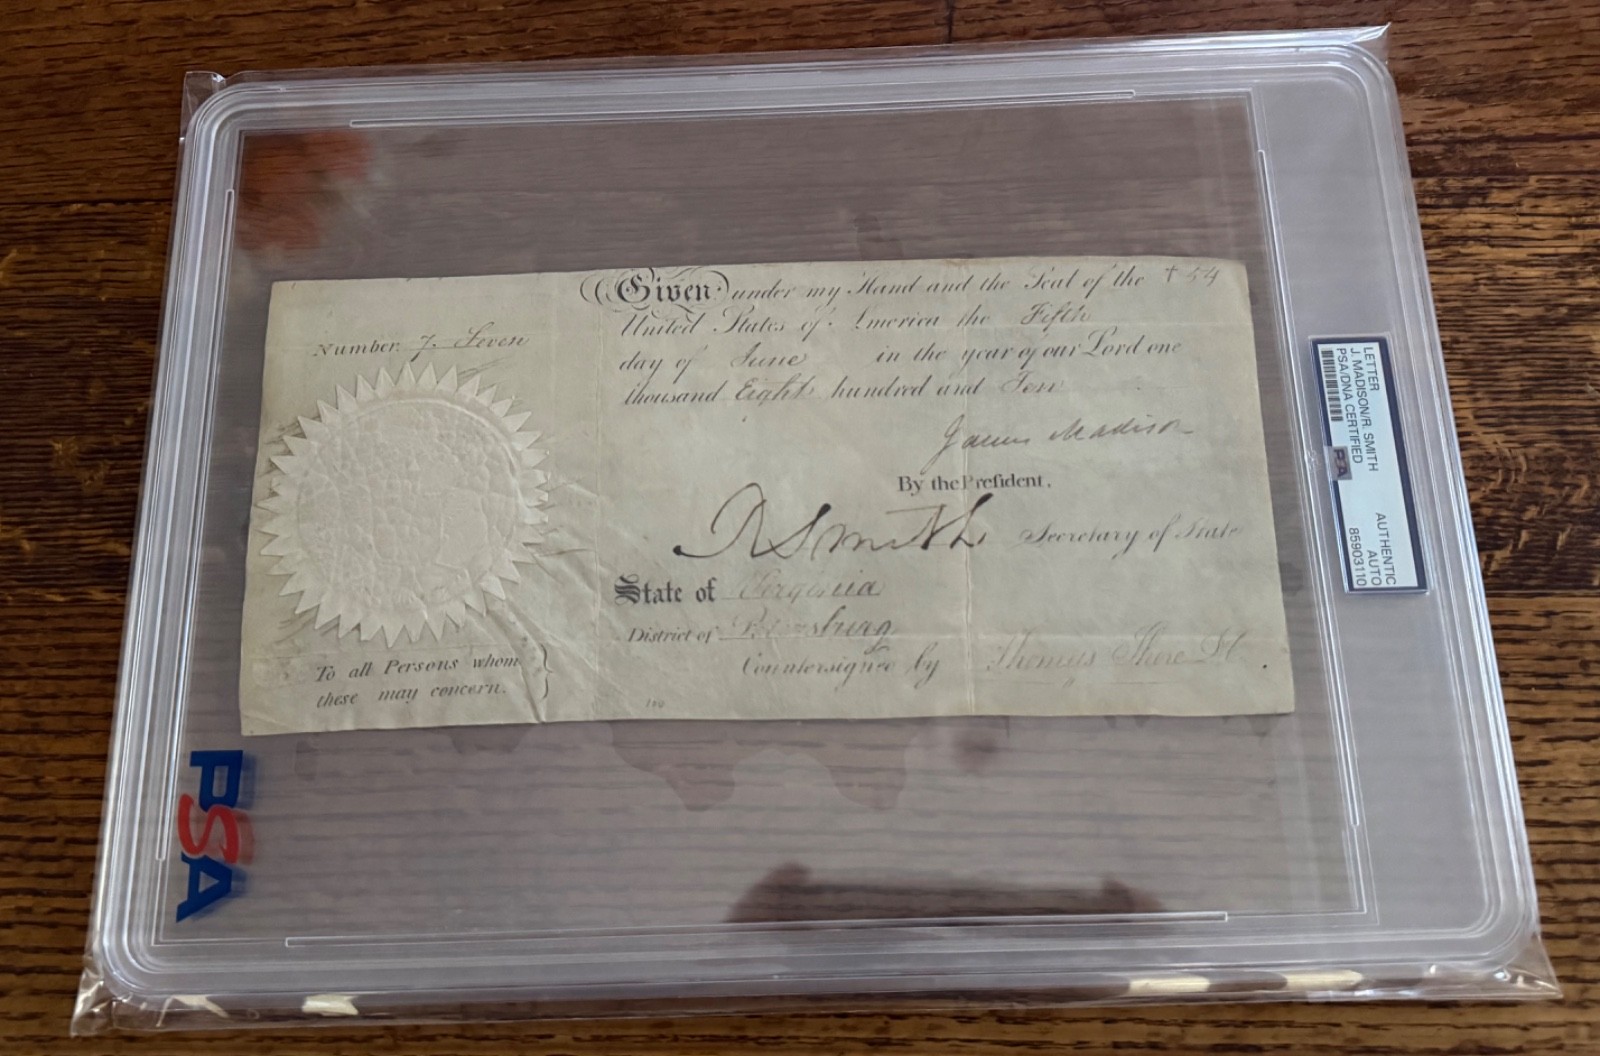 Given under my Hand and the Seal of the + 54
United States of America the Fifth
day of June in the year of our Lord one
thousand Eight hundred and Ten
Number 7. Seven
James Madison
By the Preſident,
R Smith Secretary of State
State of Virginia
District of Petersburg
Countersigned by Thomas Shore
To all Persons whom
these may concern.
PSA
LETTER
J. MADISON/R. SMITH
PSA/DNA CERTIFIED
AUTHENTIC
AUTO
85903110